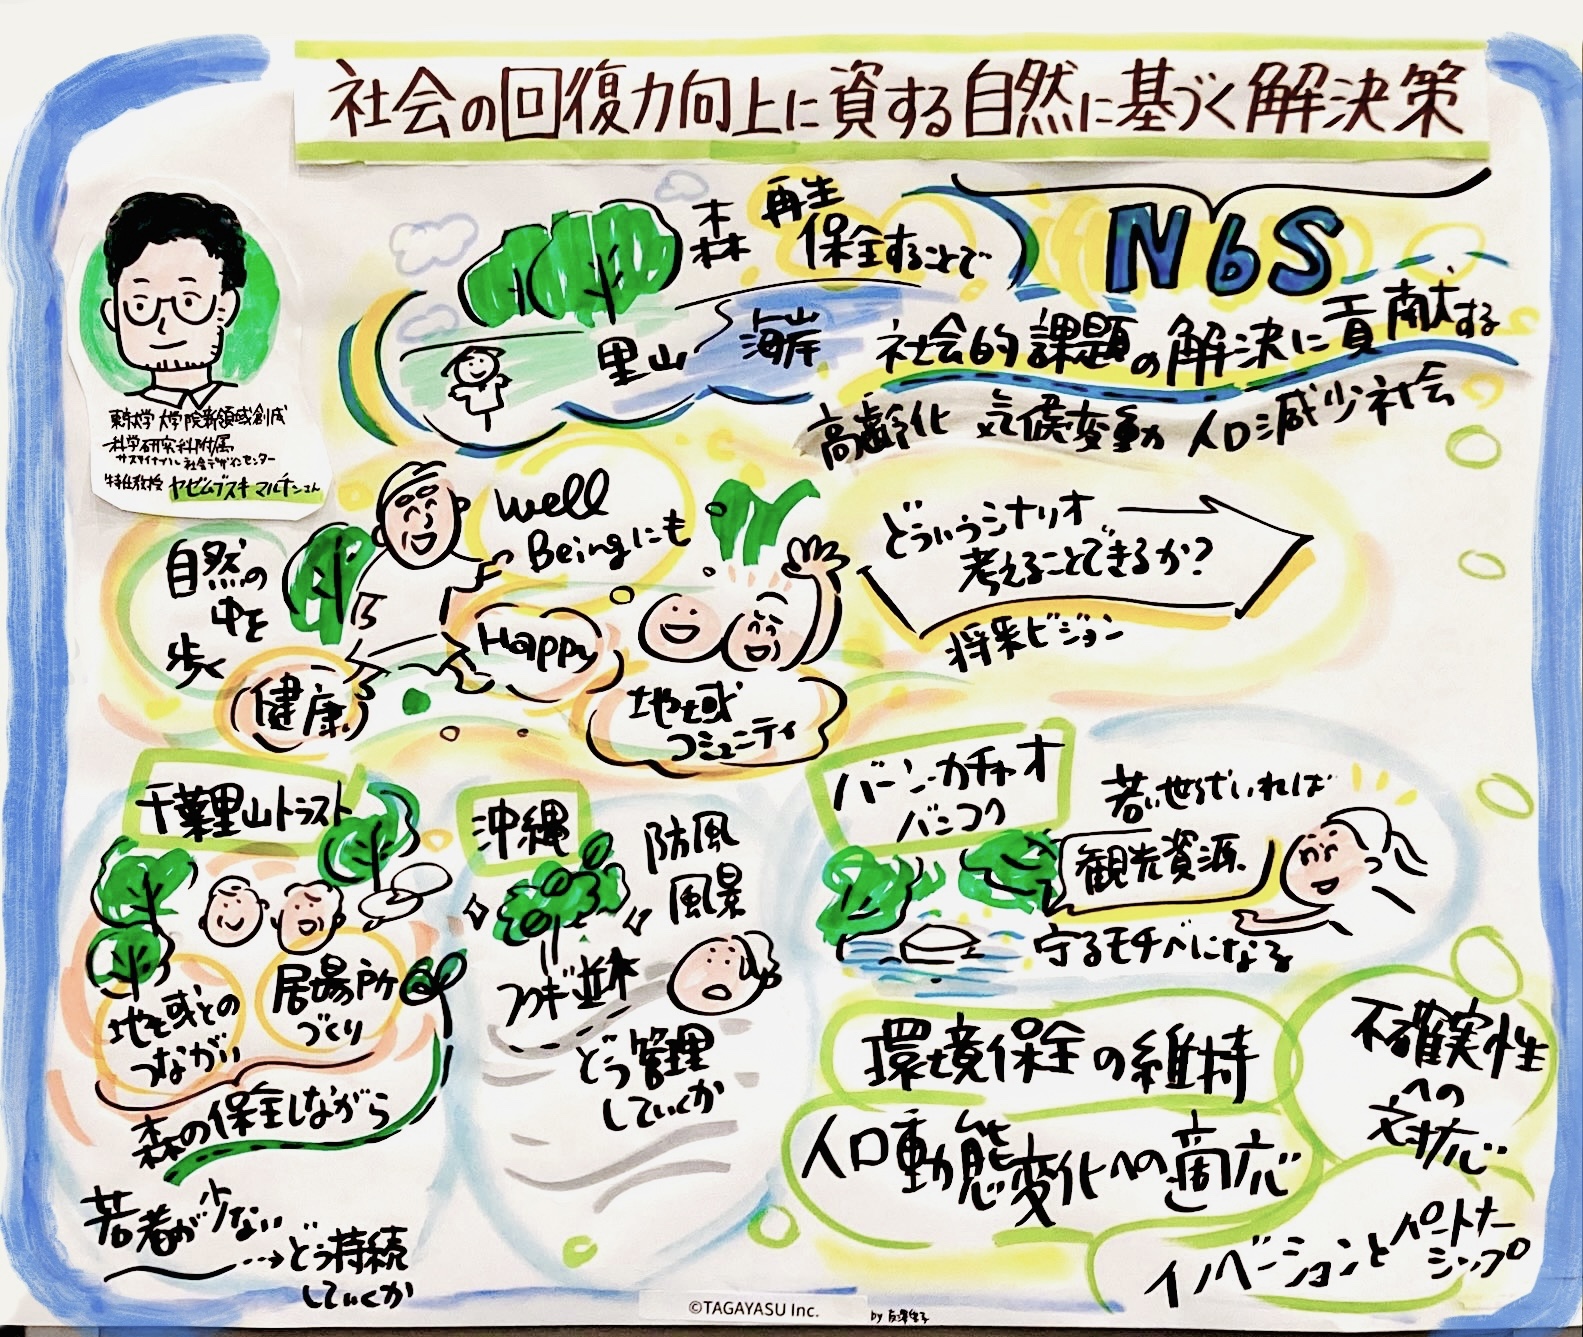 社会の回復力向上に資する自然に基づく解決策
NbS
森
再生
保全することで
里山
海岸
社会的課題の解決に貢献する
高齢化 気候変動 人口減少社会
東京大学大学院新領域創成
科学研究科附属
サステイナブル社会デザインセンター
特任教授 ヤゼムブスキ マルチンさん
自然の
中を
歩く
健康
Well
Beingにも
Happy
地域
コミュニティ
どういうシナリオ
考えることできるか?
将来ビジョン
千葉里山トラスト
地域との
つながり
居場所
づくり
森の保全しながら
若者が少ない
→どう持続
していくか
沖縄
防風
風景
フクギ並木
どう管理
していくか
バーンカチャオ
バンコク
若い世代いれば
観光資源
守るモチベになる
環境保全の維持
人口動態変化への適応
不確実性
への
対応
イノベーションとパートナー
シップ
©TAGAYASU Inc.
by